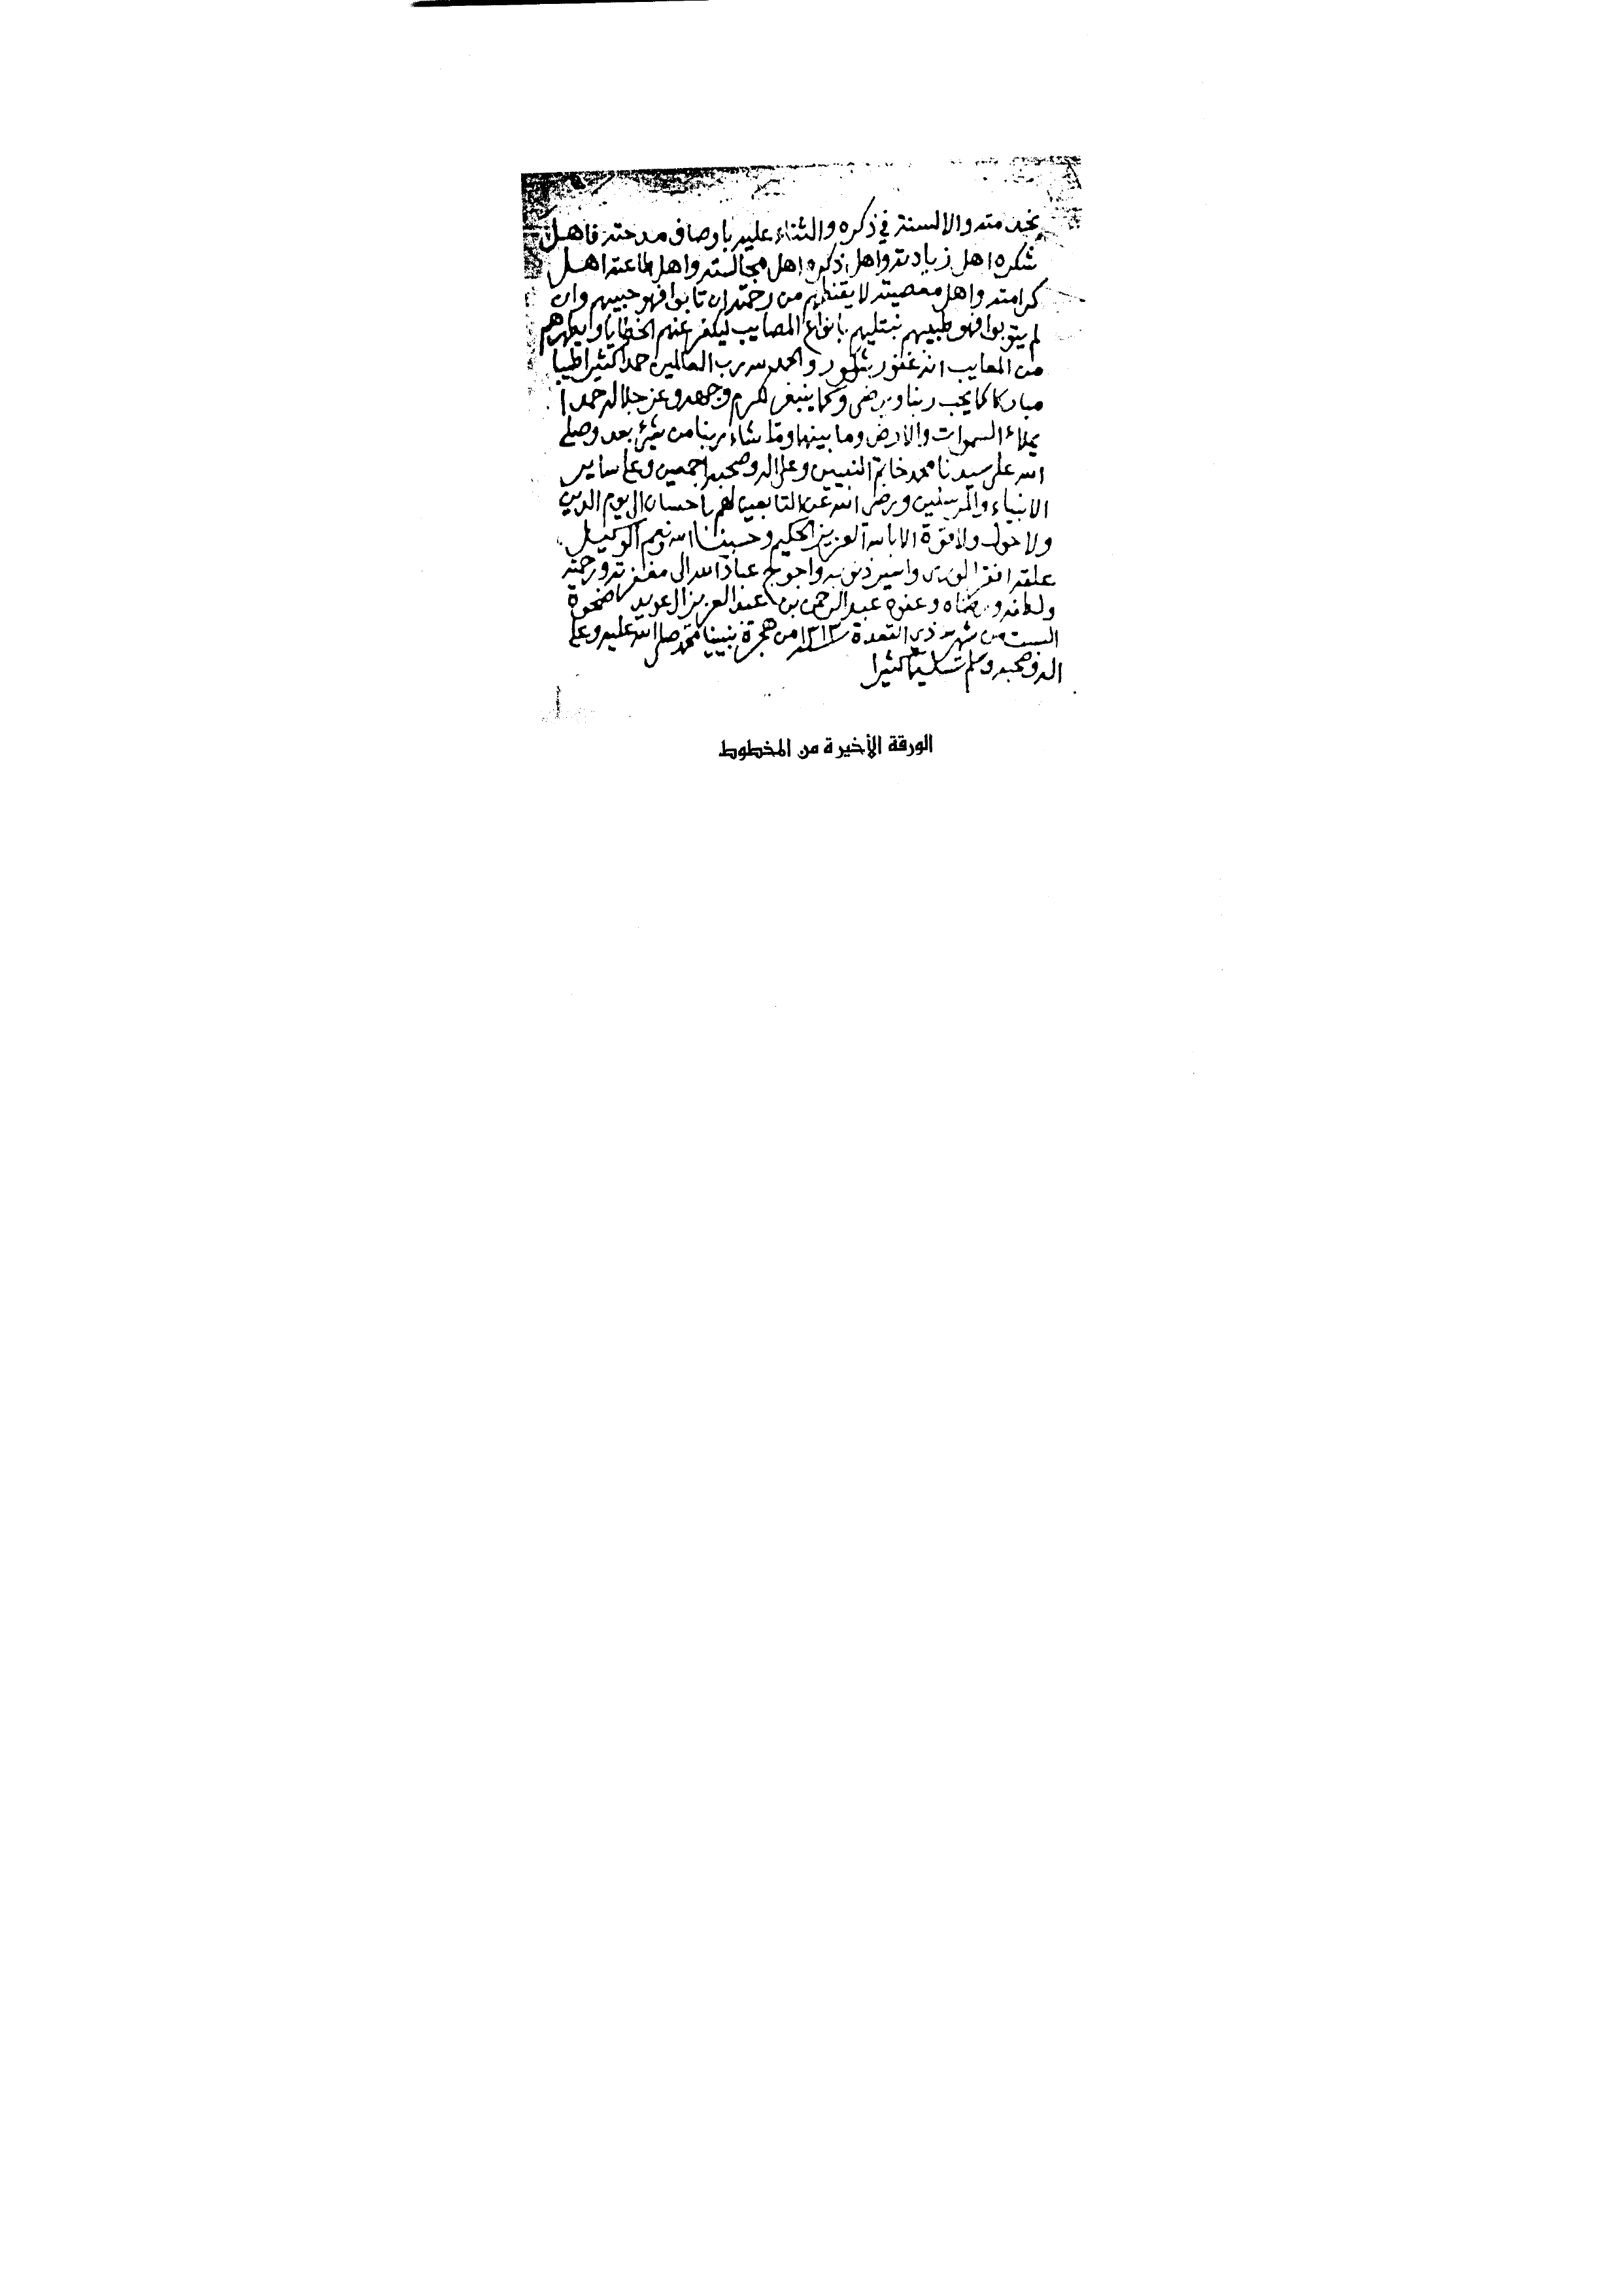 بخدمته والالسنة في ذكره والثناء عليه باوصاف مدحته فاهل
شكره اهل زيادته واهل ذكره اهل مجالسته واهل طاعته اهل
كرامته واهل معصيته لا يقنطهم من رحمته ان تابوا فهو حبيبهم وان
لم يتوبوا فهو طبيبهم يبتليهم بانواع المصايب ليكفر عنهم الخطايا ويطهرهم
من المعايب انه غفور شكور والحمد لله رب العالمين حمدا كثيرا طيبا
مباركا كما يحب ربنا ويرضى وكما ينبغي لكرم وجهه وعز جلاله حمدا
يملاء السموات والارض وما بينهما وما شاء ربنا من شيئ بعد وصلى
الله على سيدنا محمد خاتم النبيين وعلى اله وصحبه اجمعين وعلى ساير
الانبياء والمرسلين ورضى الله عن التابعين لهم باحسان الى يوم الدين
ولا حول ولا قوة الا بالله العزيز الحكيم وحسبنا الله ونعم الوكيل
علقه افقر الورى واسير ذنوبه واحوج عباد الله الى مغفرته ورحمته
ولطفه ورضاه وعفوه عبد الرحمن بن عبد العزيز ال عويد ضحوة
السبت من شهر ذي القعدة سنة ١٣١٣ من هجرة نبينا محمد صلى الله عليه وعلى
اله وصحبه وسلم تسليما كثيرا
الورقة الأخيرة من المخطوط